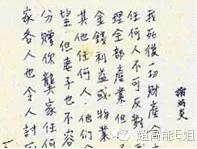 我死後一切財產
任何人不可反對
理全部產業但
金錢利益或物業
其他任何人他們
望但妻子也不容
分贈你龔家任何
家各人也令人討
超高能E姐